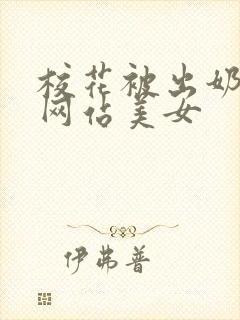 校花被出奶
网佔美女
伊弗普